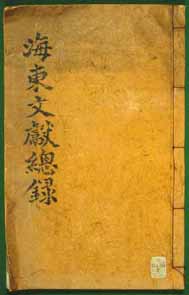 海東文獻總錄